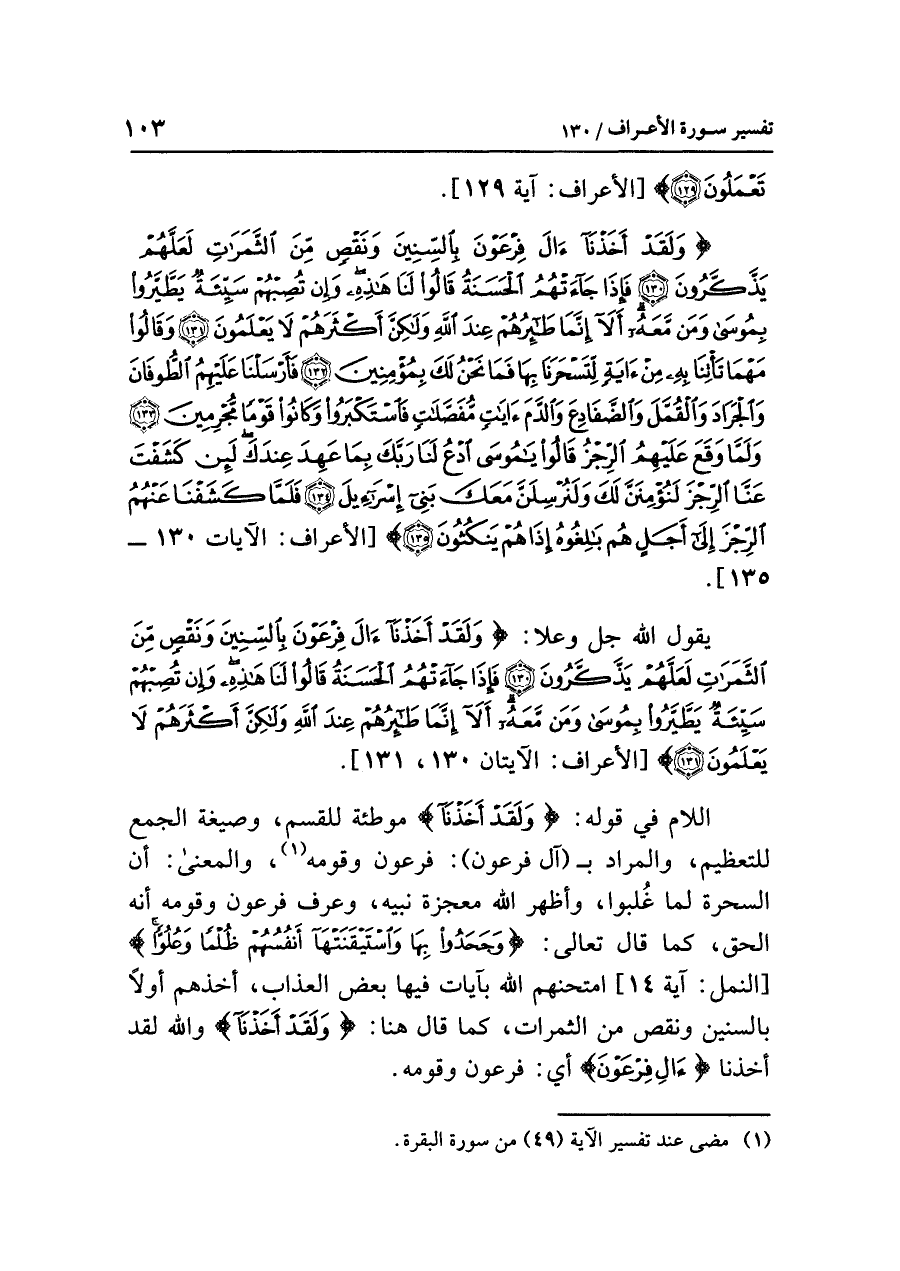 تفسير سـورة الأعـراف / ١٣٠
١٠٣
تَعْمَلُونَ ﴿١٢٩﴾﴾ [الأعراف: آية ١٢٩].
﴿ وَلَقَدْ أَخَذْنَآ ءَالَ فِرْعَوْنَ بِٱلسِّنِينَ وَنَقْصٍ مِّنَ ٱلثَّمَرَٰتِ لَعَلَّهُمْ
يَذَّكَّرُونَ ﴿١٣٠﴾ فَإِذَا جَآءَتْهُمُ ٱلْحَسَنَةُ قَالُوا۟ لَنَا هَٰذِهِۦ ۖ وَإِن تُصِبْهُمْ سَيِّئَةٌ يَطَّيَّرُوا۟
بِمُوسَىٰ وَمَن مَّعَهُۥٓ ۗ أَلَآ إِنَّمَا طَٰٓئِرُهُمْ عِندَ ٱللَّهِ وَلَٰكِنَّ أَكْثَرَهُمْ لَا يَعْلَمُونَ ﴿١٣١﴾ وَقَالُوا۟
مَهْمَا تَأْتِنَا بِهِۦ مِنْ ءَايَةٍ لِّتَسْحَرَنَا بِهَا فَمَا نَحْنُ لَكَ بِمُؤْمِنِينَ ﴿١٣٢﴾ فَأَرْسَلْنَا عَلَيْهِمُ ٱلطُّوفَانَ
وَٱلْجَرَادَ وَٱلْقُمَّلَ وَٱلضَّفَادِعَ وَٱلدَّمَ ءَايَٰتٍ مُّفَصَّلَٰتٍ فَٱسْتَكْبَرُوا۟ وَكَانُوا۟ قَوْمًا مُّجْرِمِينَ ﴿١٣٣﴾
وَلَمَّا وَقَعَ عَلَيْهِمُ ٱلرِّجْزُ قَالُوا۟ يَٰمُوسَى ٱدْعُ لَنَا رَبَّكَ بِمَا عَهِدَ عِندَكَ ۖ لَئِن كَشَفْتَ
عَنَّا ٱلرِّجْزَ لَنُؤْمِنَنَّ لَكَ وَلَنُرْسِلَنَّ مَعَكَ بَنِىٓ إِسْرَٰٓءِيلَ ﴿١٣٤﴾ فَلَمَّا كَشَفْنَا عَنْهُمُ
ٱلرِّجْزَ إِلَىٰٓ أَجَلٍ هُم بَٰلِغُوهُ إِذَا هُمْ يَنكُثُونَ ﴿١٣٥﴾﴾ [الأعراف: الآيات ١٣٠ ــ
١٣٥].
يقول الله جل وعلا: ﴿ وَلَقَدْ أَخَذْنَآ ءَالَ فِرْعَوْنَ بِٱلسِّنِينَ وَنَقْصٍ مِّنَ
ٱلثَّمَرَٰتِ لَعَلَّهُمْ يَذَّكَّرُونَ ﴿١٣٠﴾ فَإِذَا جَآءَتْهُمُ ٱلْحَسَنَةُ قَالُوا۟ لَنَا هَٰذِهِۦ ۖ وَإِن تُصِبْهُمْ
سَيِّئَةٌ يَطَّيَّرُوا۟ بِمُوسَىٰ وَمَن مَّعَهُۥٓ ۗ أَلَآ إِنَّمَا طَٰٓئِرُهُمْ عِندَ ٱللَّهِ وَلَٰكِنَّ أَكْثَرَهُمْ لَا
يَعْلَمُونَ ﴿١٣١﴾﴾ [الأعراف: الآيتان ١٣٠، ١٣١].
اللام في قوله: ﴿ وَلَقَدْ أَخَذْنَآ﴾ موطئة للقسم، وصيغة الجمع
للتعظيم، والمراد بـ (آل فرعون): فرعون وقومه(١)، والمعنىٰ: أن
السحرة لما غُلبوا، وأظهر الله معجزة نبيه، وعرف فرعون وقومه أنه
الحق، كما قال تعالى: ﴿وَجَحَدُوا۟ بِهَا وَٱسْتَيْقَنَتْهَآ أَنفُسُهُمْ ظُلْمًا وَعُلُوًّا ۚ ﴾
[النمل: آية ١٤] امتحنهم الله بآيات فيها بعض العذاب، أخذهم أولاً
بالسنين ونقص من الثمرات، كما قال هنا: ﴿ وَلَقَدْ أَخَذْنَآ﴾ والله لقد
أخذنا ﴿ ءَالَ فِرْعَوْنَ﴾ أي: فرعون وقومه.
(١) مضى عند تفسير الآية (٤٩) من سورة البقرة.